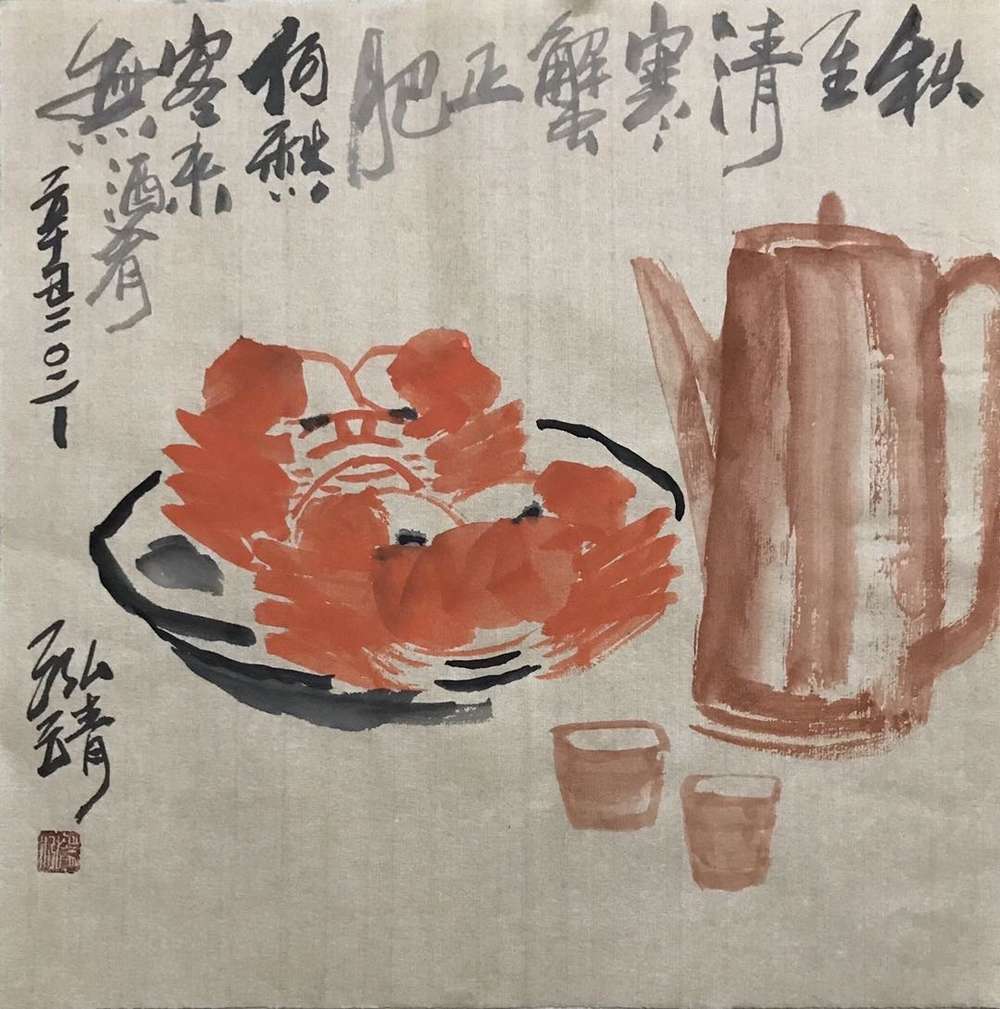 秋至清寒蟹正肥
何愁
客来
無酒肴
辛丑二〇二一
泓靖